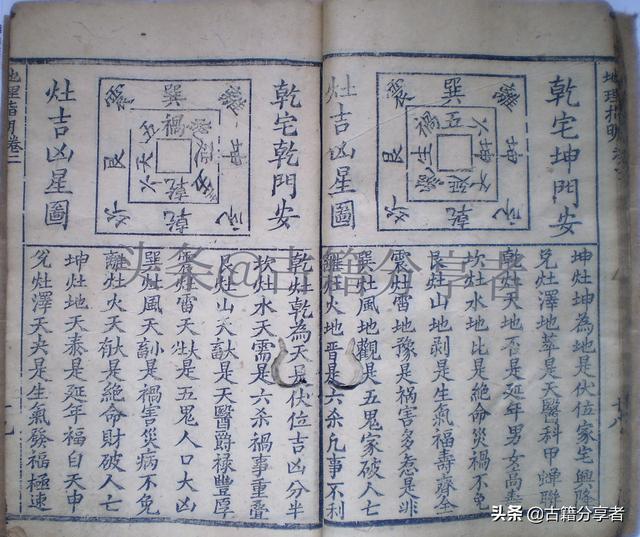 地理指明
乾宅坤門安
震 巽 離
艮 坤
坎 乾 兌
禍 五 六
生 坤
絕 延 天
灶吉凶星圖
坤灶坤為地是伏位家宅興隆
兌灶澤地萃是天醫科甲蟬聯
乾灶天地否是延年男女高壽
坎灶水地比是絕命災禍不免
艮灶山地剝是生氣福壽齊全
震灶雷地豫是禍害多惹是非
巽灶風地觀是五鬼家破人亡
離灶火地晋是六杀凡事不利
十八
乾宅乾門安
震 巽 離
艮 坤
坎 乾
五 禍 絕
天 延
六 乾 生
灶吉凶星圖
乾灶乾為天是伏位吉凶分半
坎灶水天需是六杀禍事重叠
艮灶山天大畜是天醫爵祿豐厚
震灶雷天大壯是五鬼人口大凶
巽灶風天小畜是禍害災病不免
離灶火天大有是絕命財破人亡
坤灶地天泰是延年福自天申
兌灶澤天夬是生氣發福極速
地理指明卷二
十九
头条@古籍分享者
头条 @古籍分享者